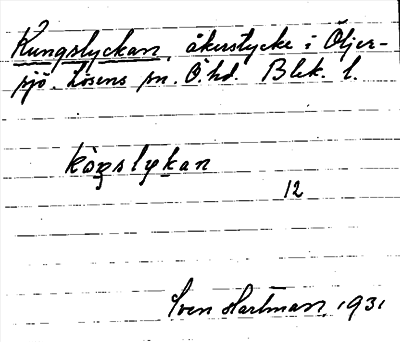 Kungslyckan, åkerstycke i Öljer-
sjö, Lösens sn. Ö. hd. Blek. l.
kòŋslykan
12
Sven Hartman, 1931